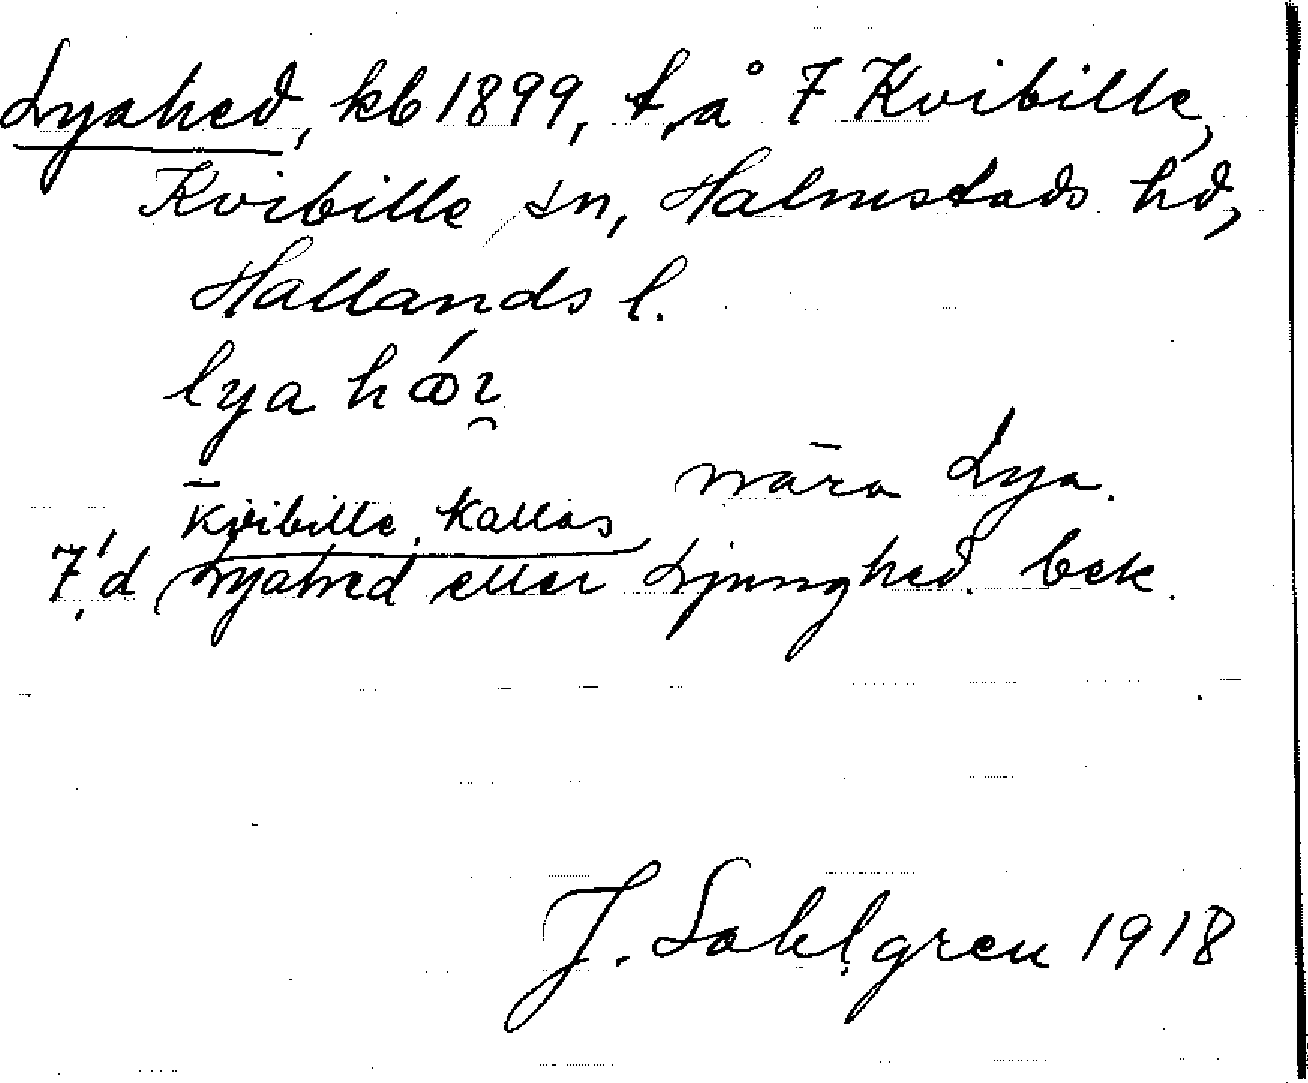 Lyahed, kb 1899, t. å 7 Kvibille,
Kvibille sn, Halmstads hd,
Hallands l.
lya
nära Lya.
Kvibille, kallas
7,d Lyahed eller Ljunghed. bek.
J. Sahlgren 1918